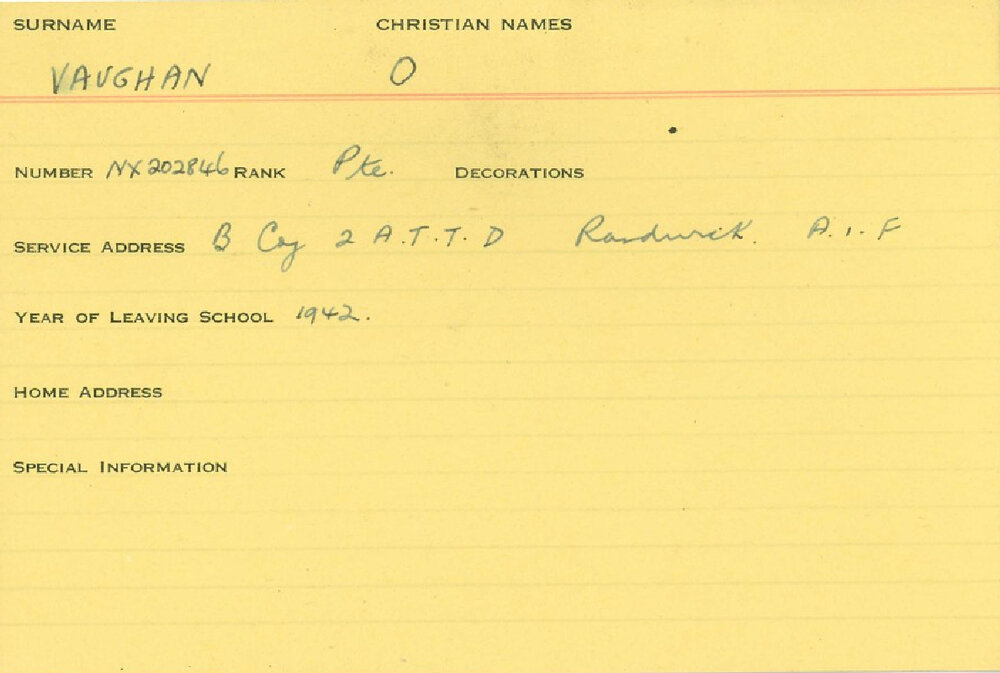 SURNAME CHRISTIAN NAMES
VAUGHAN O
NUMBER NX202846 RANK Pte. DECORATIONS
SERVICE ADDRESS B Coy 2 A.T.T.D Randwick. A.I.F
YEAR OF LEAVING SCHOOL 1942.
HOME ADDRESS
SPECIAL INFORMATION